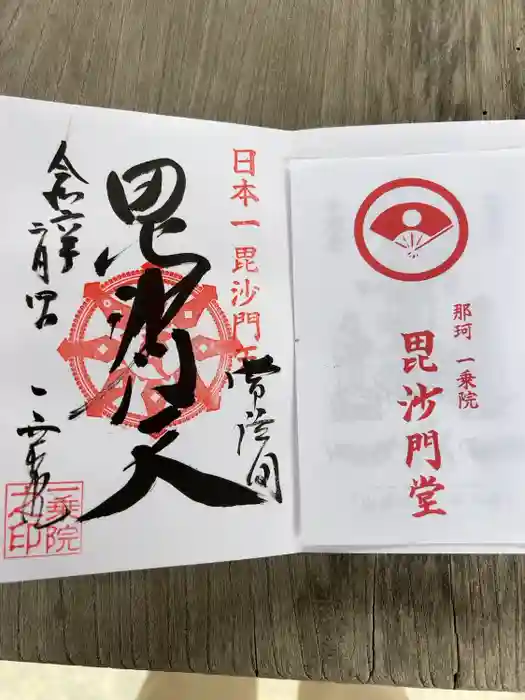 那珂 一乗院
毘沙門堂
日本一毘沙門天
常陸国
毘沙門天
令和六年
二月四日
一乗院
一乗院
之印